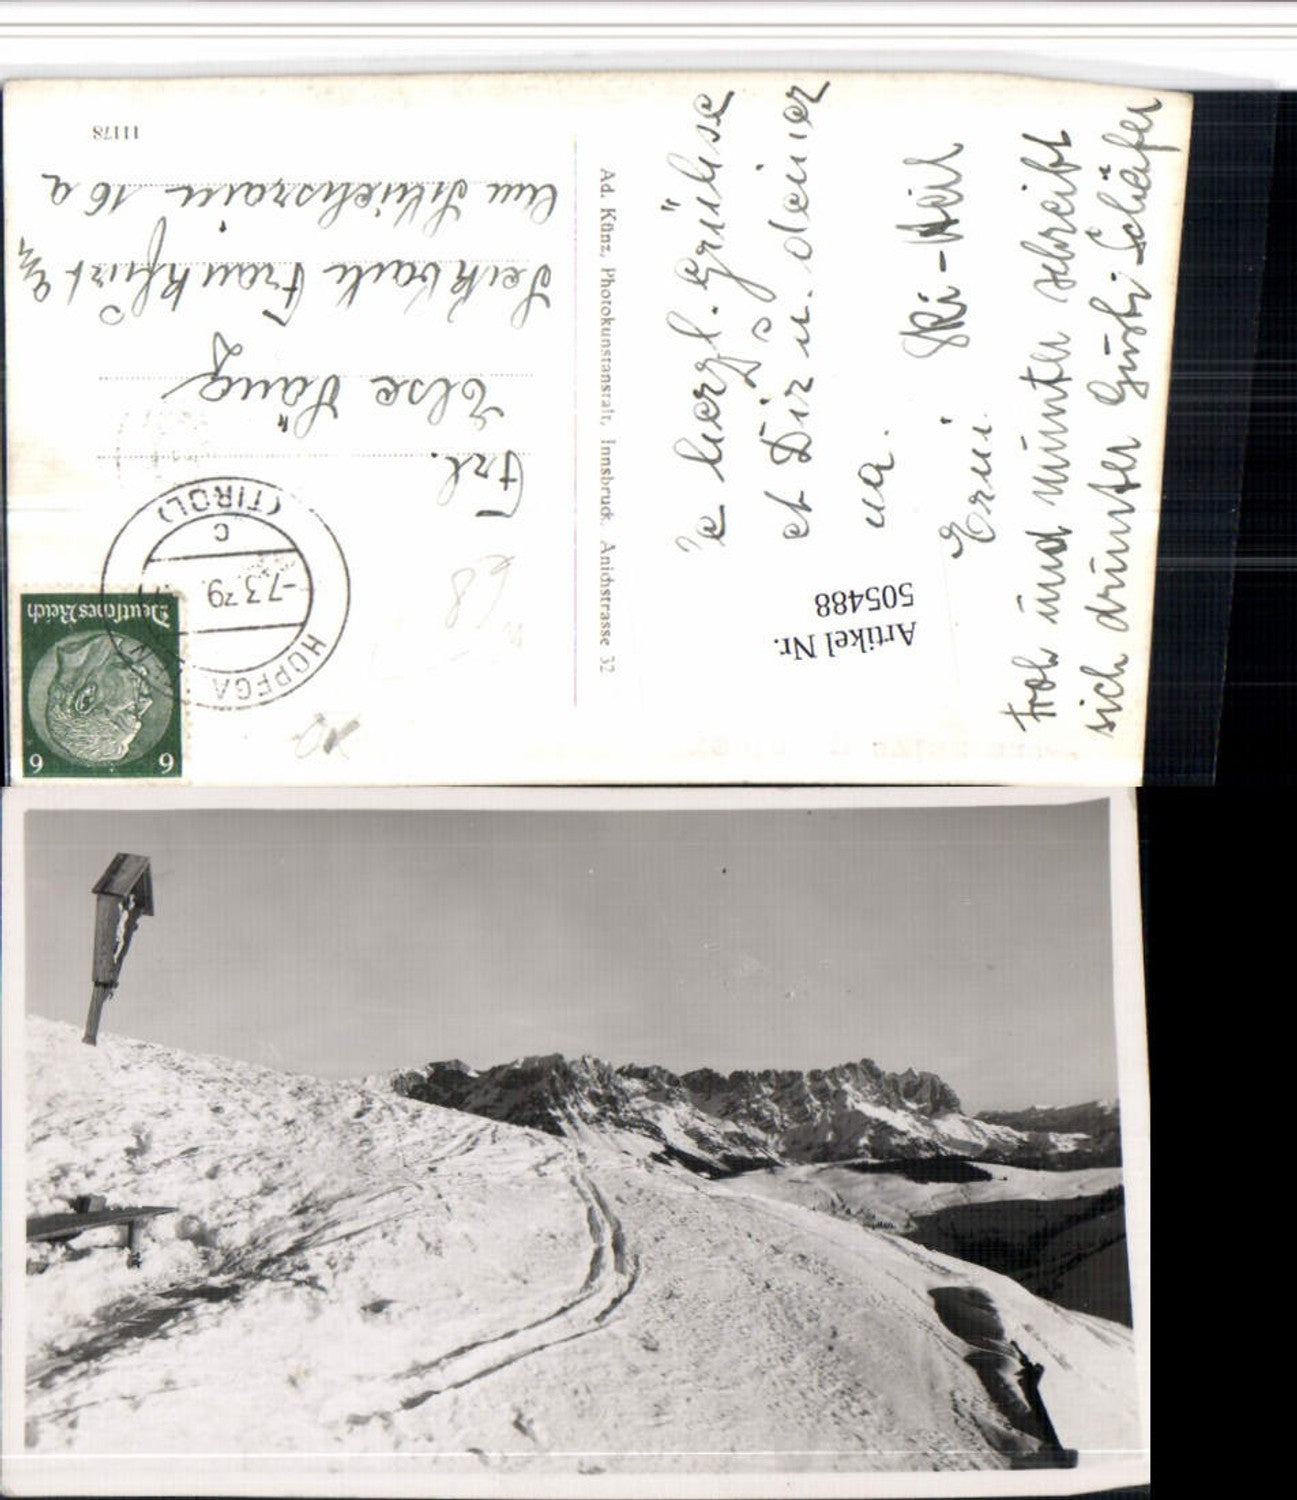 11178
Frl.
Else Säng
Seckbach Frankfurt a/M
Am Schlichsrain 16 a
Deutsches Reich
6 6
HOPFGA
(TIROL)
-7.3.39.
c
Ad. Künz, Photokunstanstalt, Innsbruck, Anichstrasse 32
herzl. Grüsse
Dir u. deiner
Ski-Heil
Erni.
Artikel Nr.
505488
Froh und munter schreibt
sich drunter Gusti Schäfer